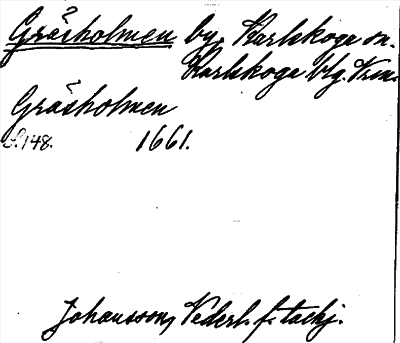 Gräsholmen by, Karlskoga sn.
Karlskoga blg. Vrm.
Gräsholmen
S. 148. 1661.
Johansson, Nederl. f. tackj.